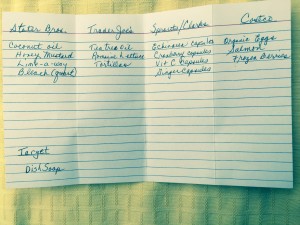 Stater Bros.
Coconut oil
Honey Mustard
Lime-a-way
Bleach (quart)
Trader Joe's
Tea tree oil
Romaine Lettuce
Tortillas
Sprouts/Clarks
Echinacea capsules
Cranberry capsules
Vit C capsules
Ginger capsules
Costco
Organic Eggs
Salmon
Frozen Berries
Target
Dish Soap